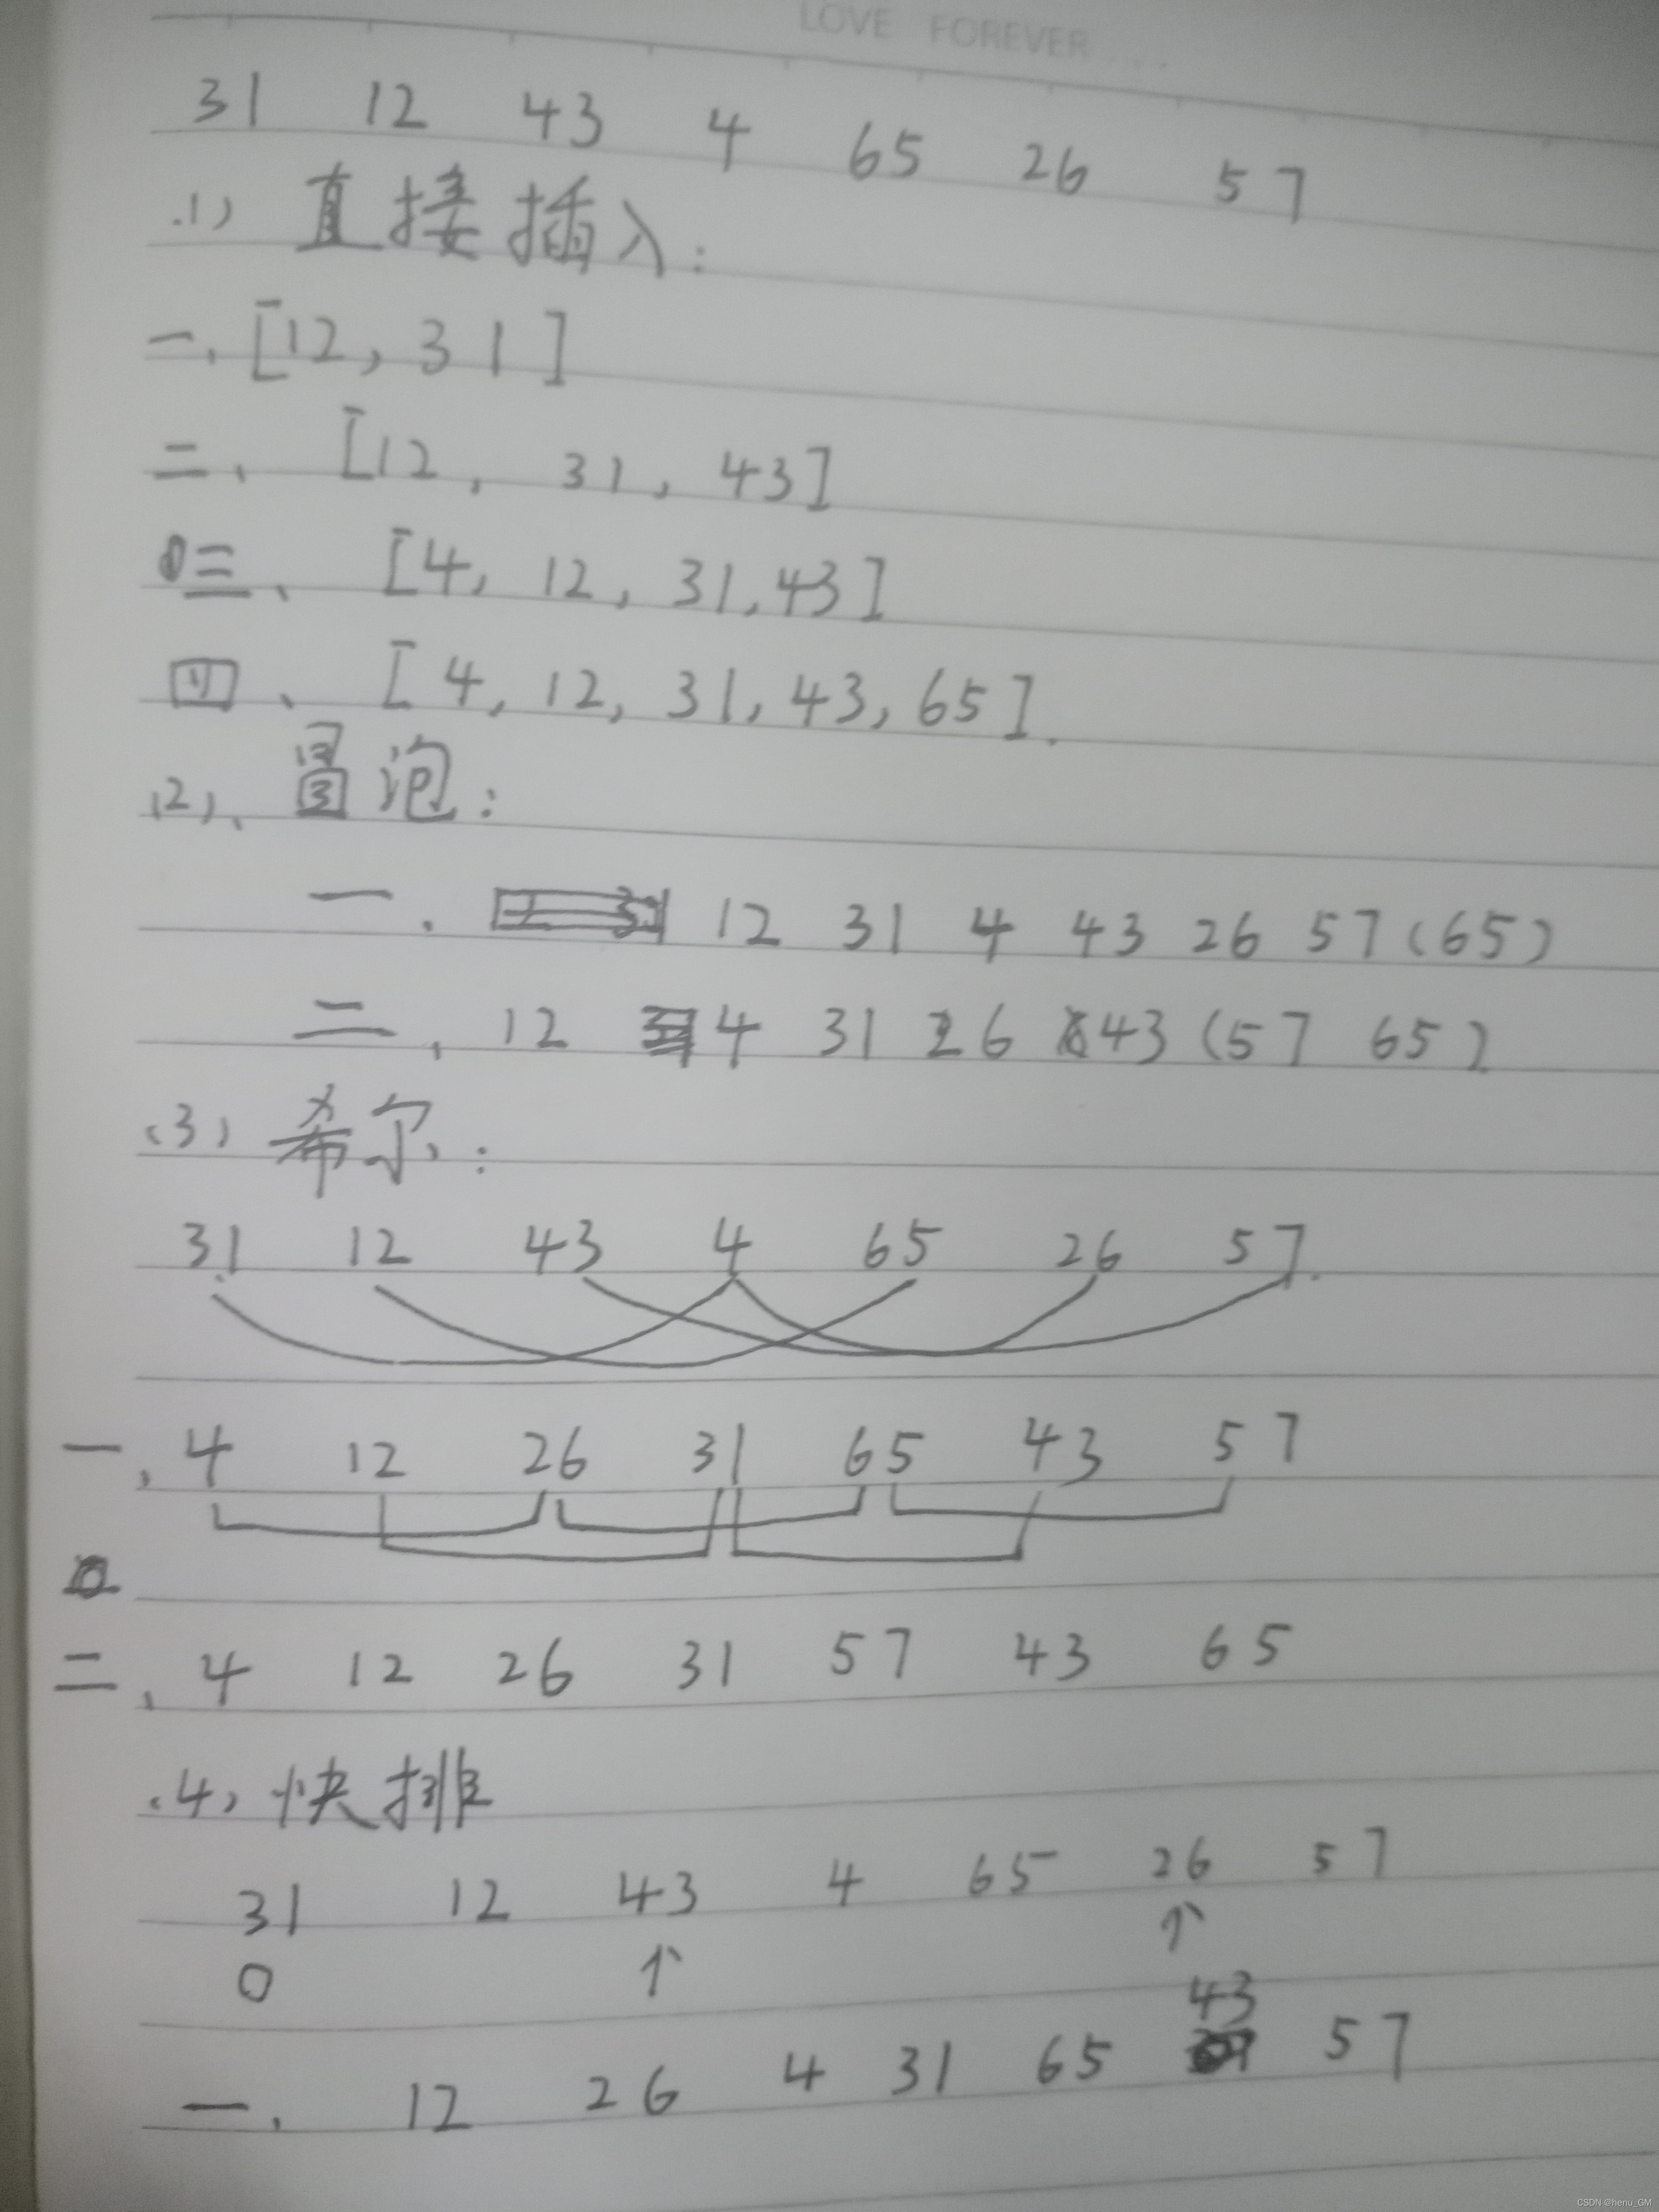 LOVE FOREVER...
31 12 43 4 65 26 57
(1) 直接插入:
一、[12, 31]
二、[12, 31, 43]
三、[4, 12, 31, 43]
四、[4, 12, 31, 43, 65].
(2)、冒泡:
一、12 31 4 43 26 57 (65)
二、12 4 31 26 43 (57 65)
(3) 希尔:
31 12 43 4 65 26 57.
一、4 12 26 31 65 43 57
二、4 12 26 31 57 43 65
(4) 快排
31 12 43 4 65 26 57
0 ↑ ↑
43
一、12 26 4 31 65 57
CSDN @henu_GM